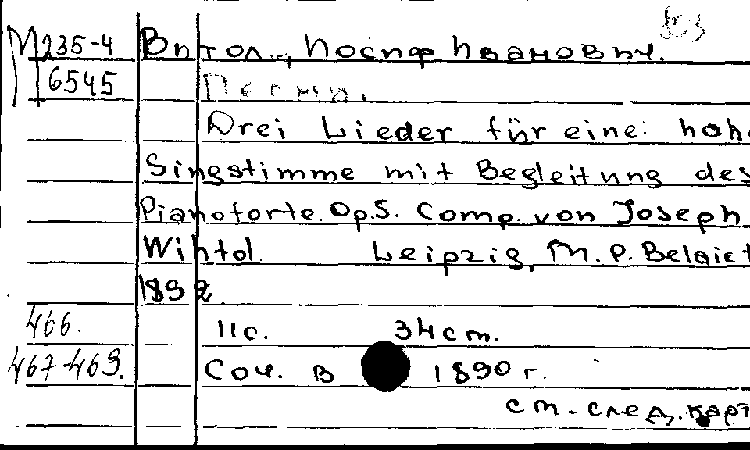 М235-4 Витол, Иосиф Иванович.
6545 Песни.
Drei Lieder für eine hohe
Singstimme mit Begleitung des
Pianoforte. Op.5. Comp. von Joseph
Wihtol. Leipzig, M. P. Belaieff
1892.
466. 11с. 34cm.
467-469. Соч. в 1890 г.
см. след. карт